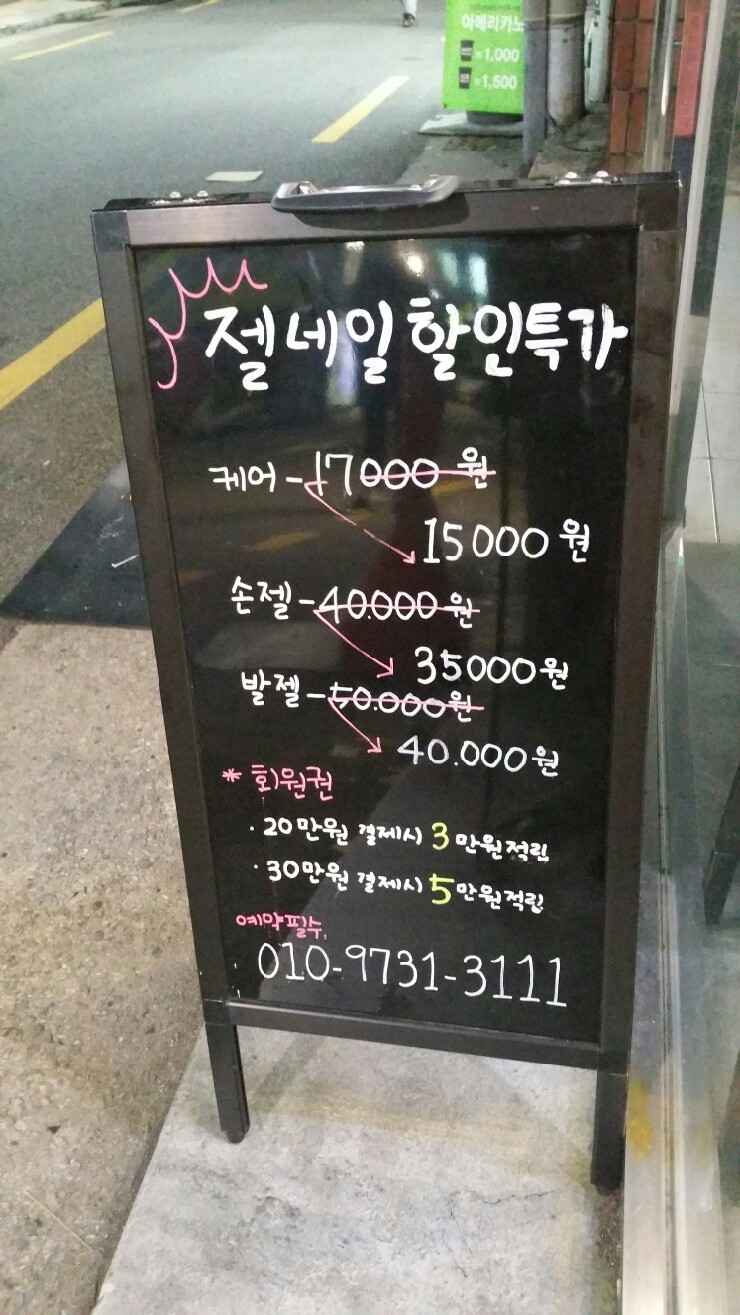 아메리카노
₩1,000
₩1,500
젤네일 할인특가
케어 - 17000 원
15000 원
손젤 - 40.000 원
35000 원
발젤 - 50.000 원
40.000 원
* 회원권
· 20만원 결제시 3만원적립
· 30만원 결제시 5만원적립
예약필수,
010-9731-3111